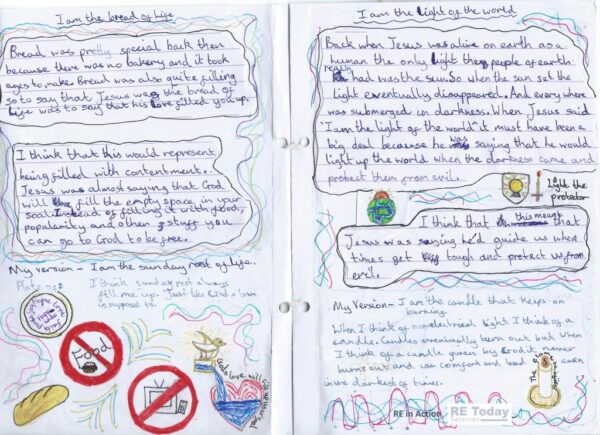 I am the bread of life
Bread was pretty special back then
because there was no bakery and it took
ages to make. Bread was also quite filling
so to say that Jesus was the bread of
life was to say that his love filled you up.
I think that this would represent
being filled with contentment.
Jesus was almost saying that God
will fill the empty space in your
soul. Instead of filling it with food,
popularity and other stuff you
can go to God to be free.
My version - I am the sunday rost of life.
I think sunday rost always
fill me up. Just like God's love
is supposed to.
Food
God's love will fill
I am the light of the world
Back when Jesus was alive on earth as a
human the only light the people of earth
really had was the sun. So when the sun set the
light eventually disappeared. And everywhere
was submerged in darkness. When Jesus said
I am the light of the world" it must have been a
big deal because he was saying that he would
light up the world when the darkness came and
protect them from evil.
Light the
protector
I think that this meant that
Jesus was saying he'd guide us when
times get tough and protect us from
evil.
My Version - I am the candle that keeps on
burning.
When I think of nonelectrical light I think of a
candle. Candles eventually burn out but when
I think of a candle given by God it never
burns out and can comfort and lead even
in the darkest of times.
RE in Action
RE Today
Services